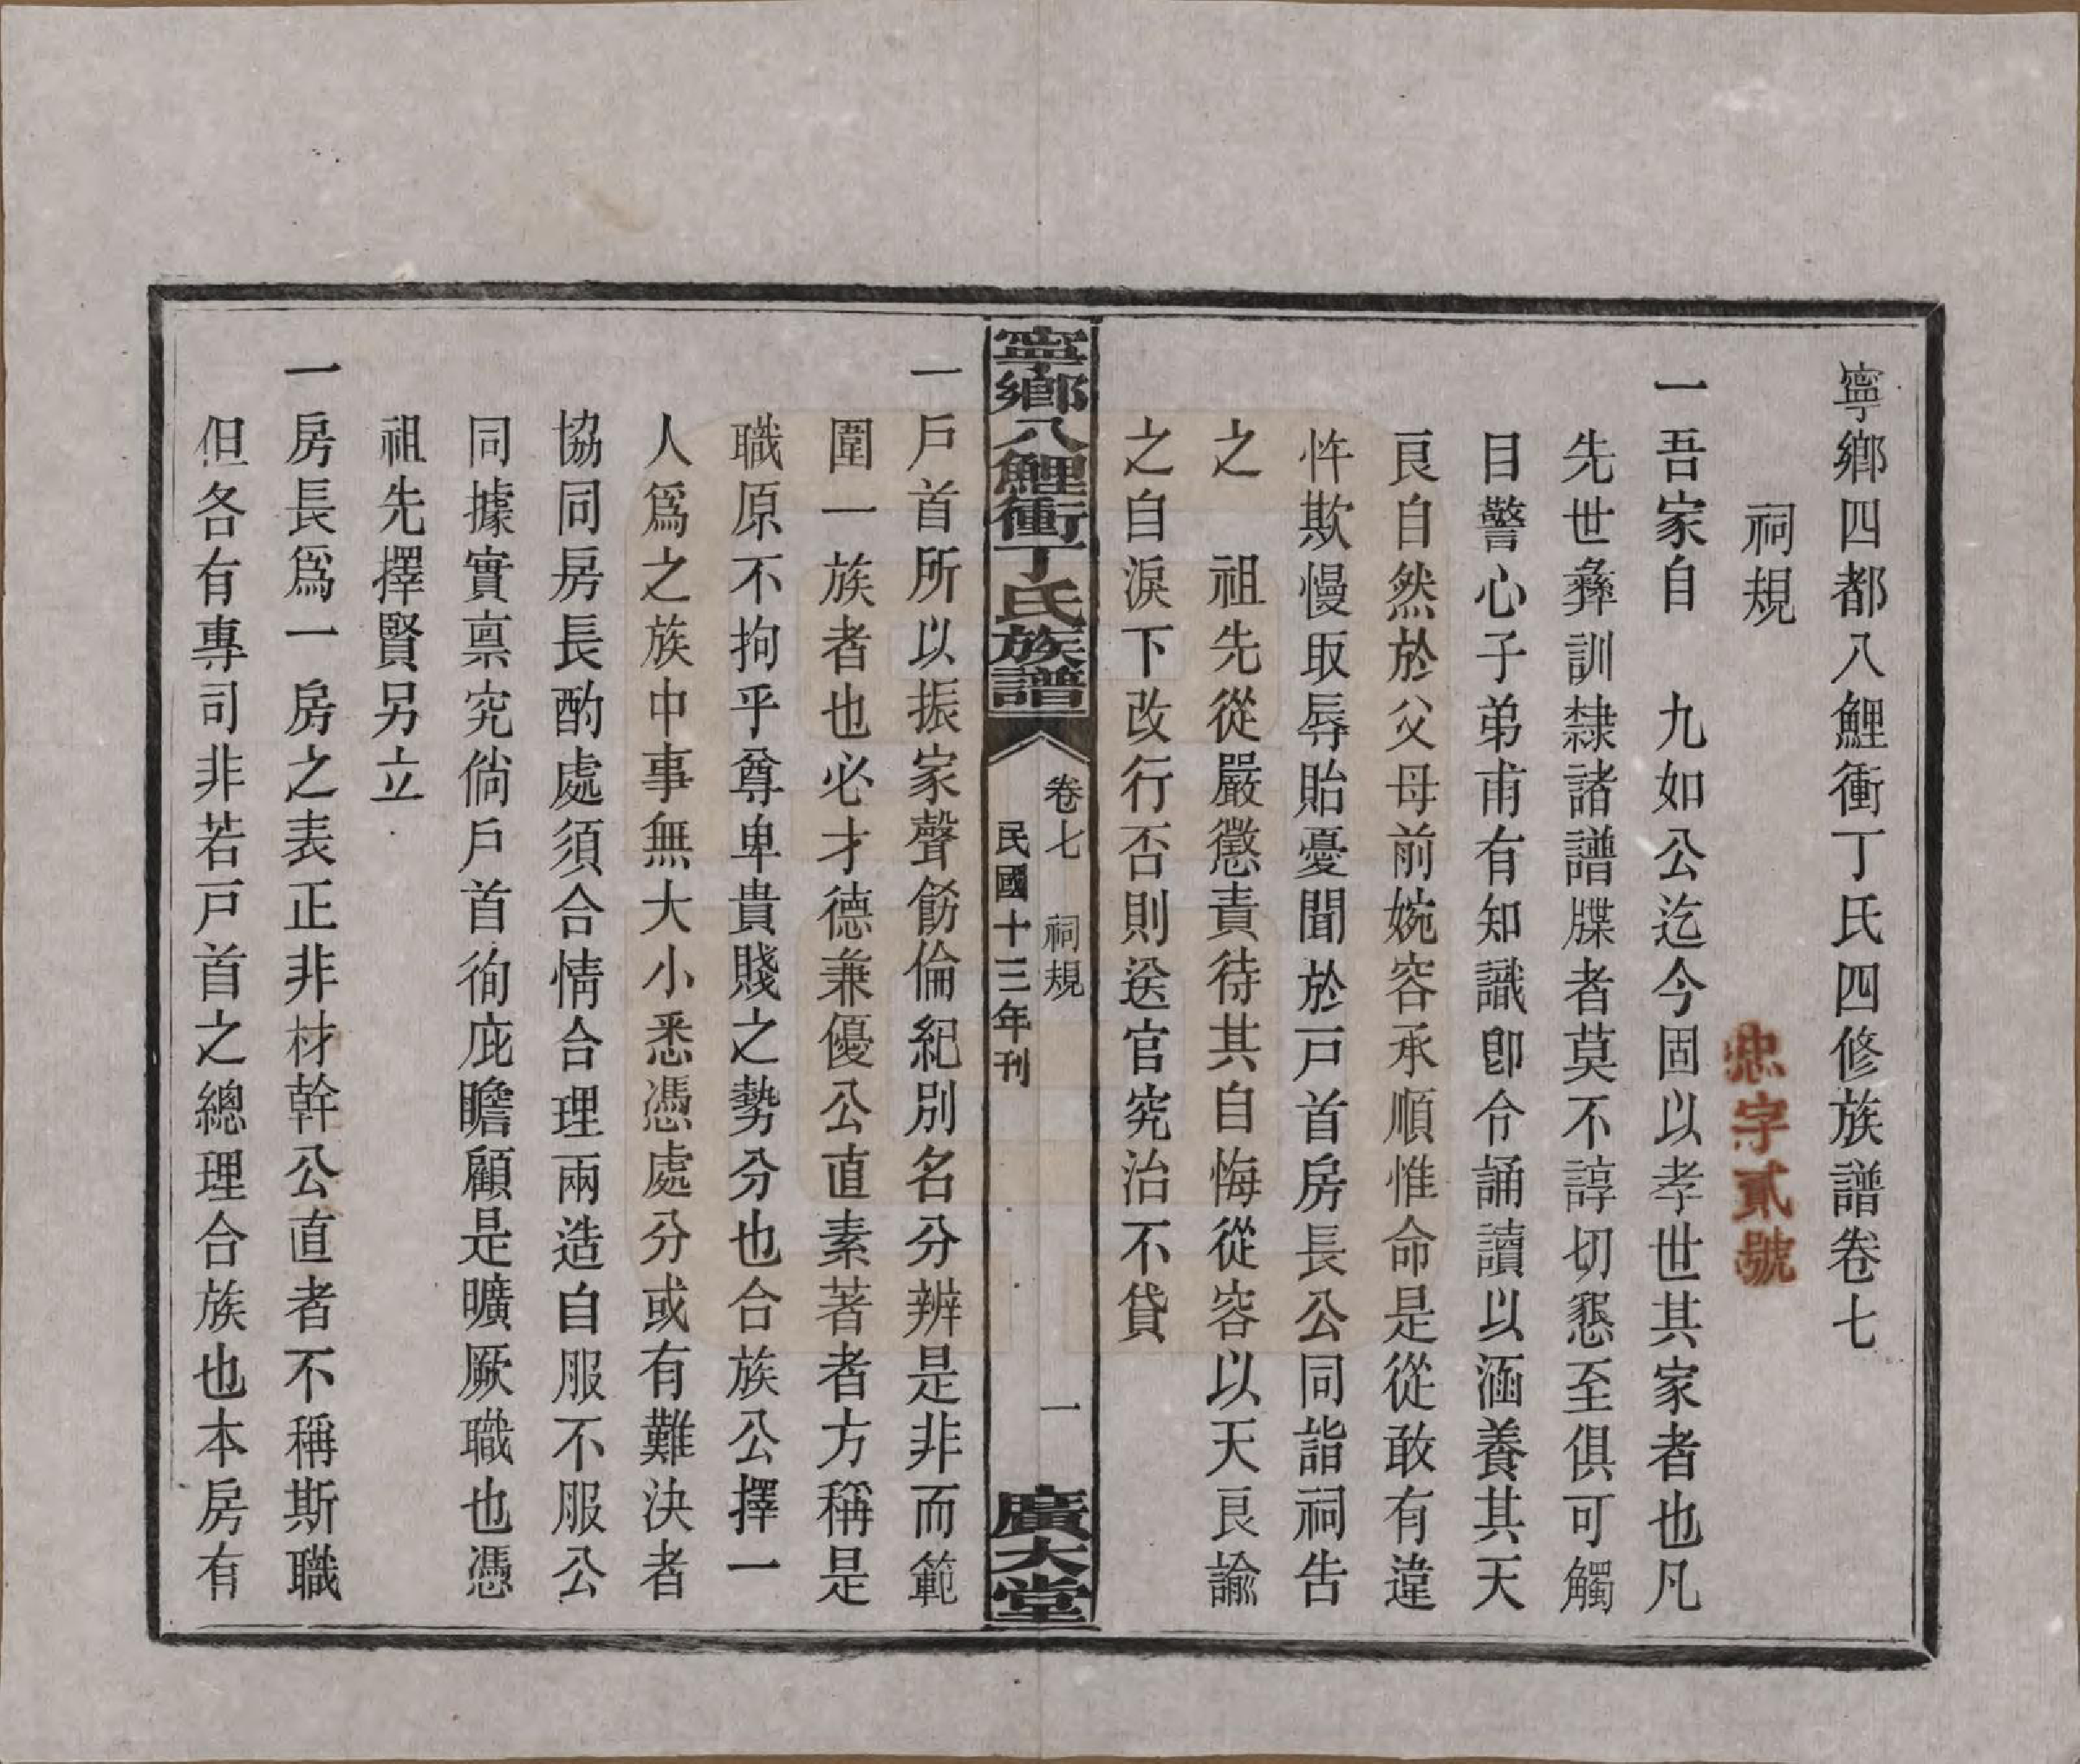 寧鄉四都八鯉衝丁氏四修族譜卷七
祠規
忠字貳號
一吾家自　九如公迄今固以孝世其家者也凡
先世彝訓隸諸譜牒者莫不諄切懇至俱可觸
目警心子弟甫有知識卽令誦讀以涵養其天
良自然於父母前婉容承順惟命是從敢有違
忤欺慢取辱貽憂聞於戸首房長公同詣祠告
之　祖先從嚴懲責待其自悔從容以天良諭
之自淚下改行否則送官究治不貸
寧鄉八鯉衝丁氏族譜
卷七　祠規
民國十三年刊
一
廣大堂
一戸首所以振家聲飭倫紀別名分辨是非而範
圍一族者也必才德兼優公直素著者方稱是
職原不拘乎尊卑貴賤之勢分也合族公擇一
人爲之族中事無大小悉憑處分或有難決者
協同房長酌處須合情合理兩造自服不服公
同據實禀究倘戸首徇庇瞻顧是曠厥職也憑
祖先擇賢另立
一房長爲一房之表正非材幹公直者不稱斯職
但各有專司非若戸首之總理合族也本房有